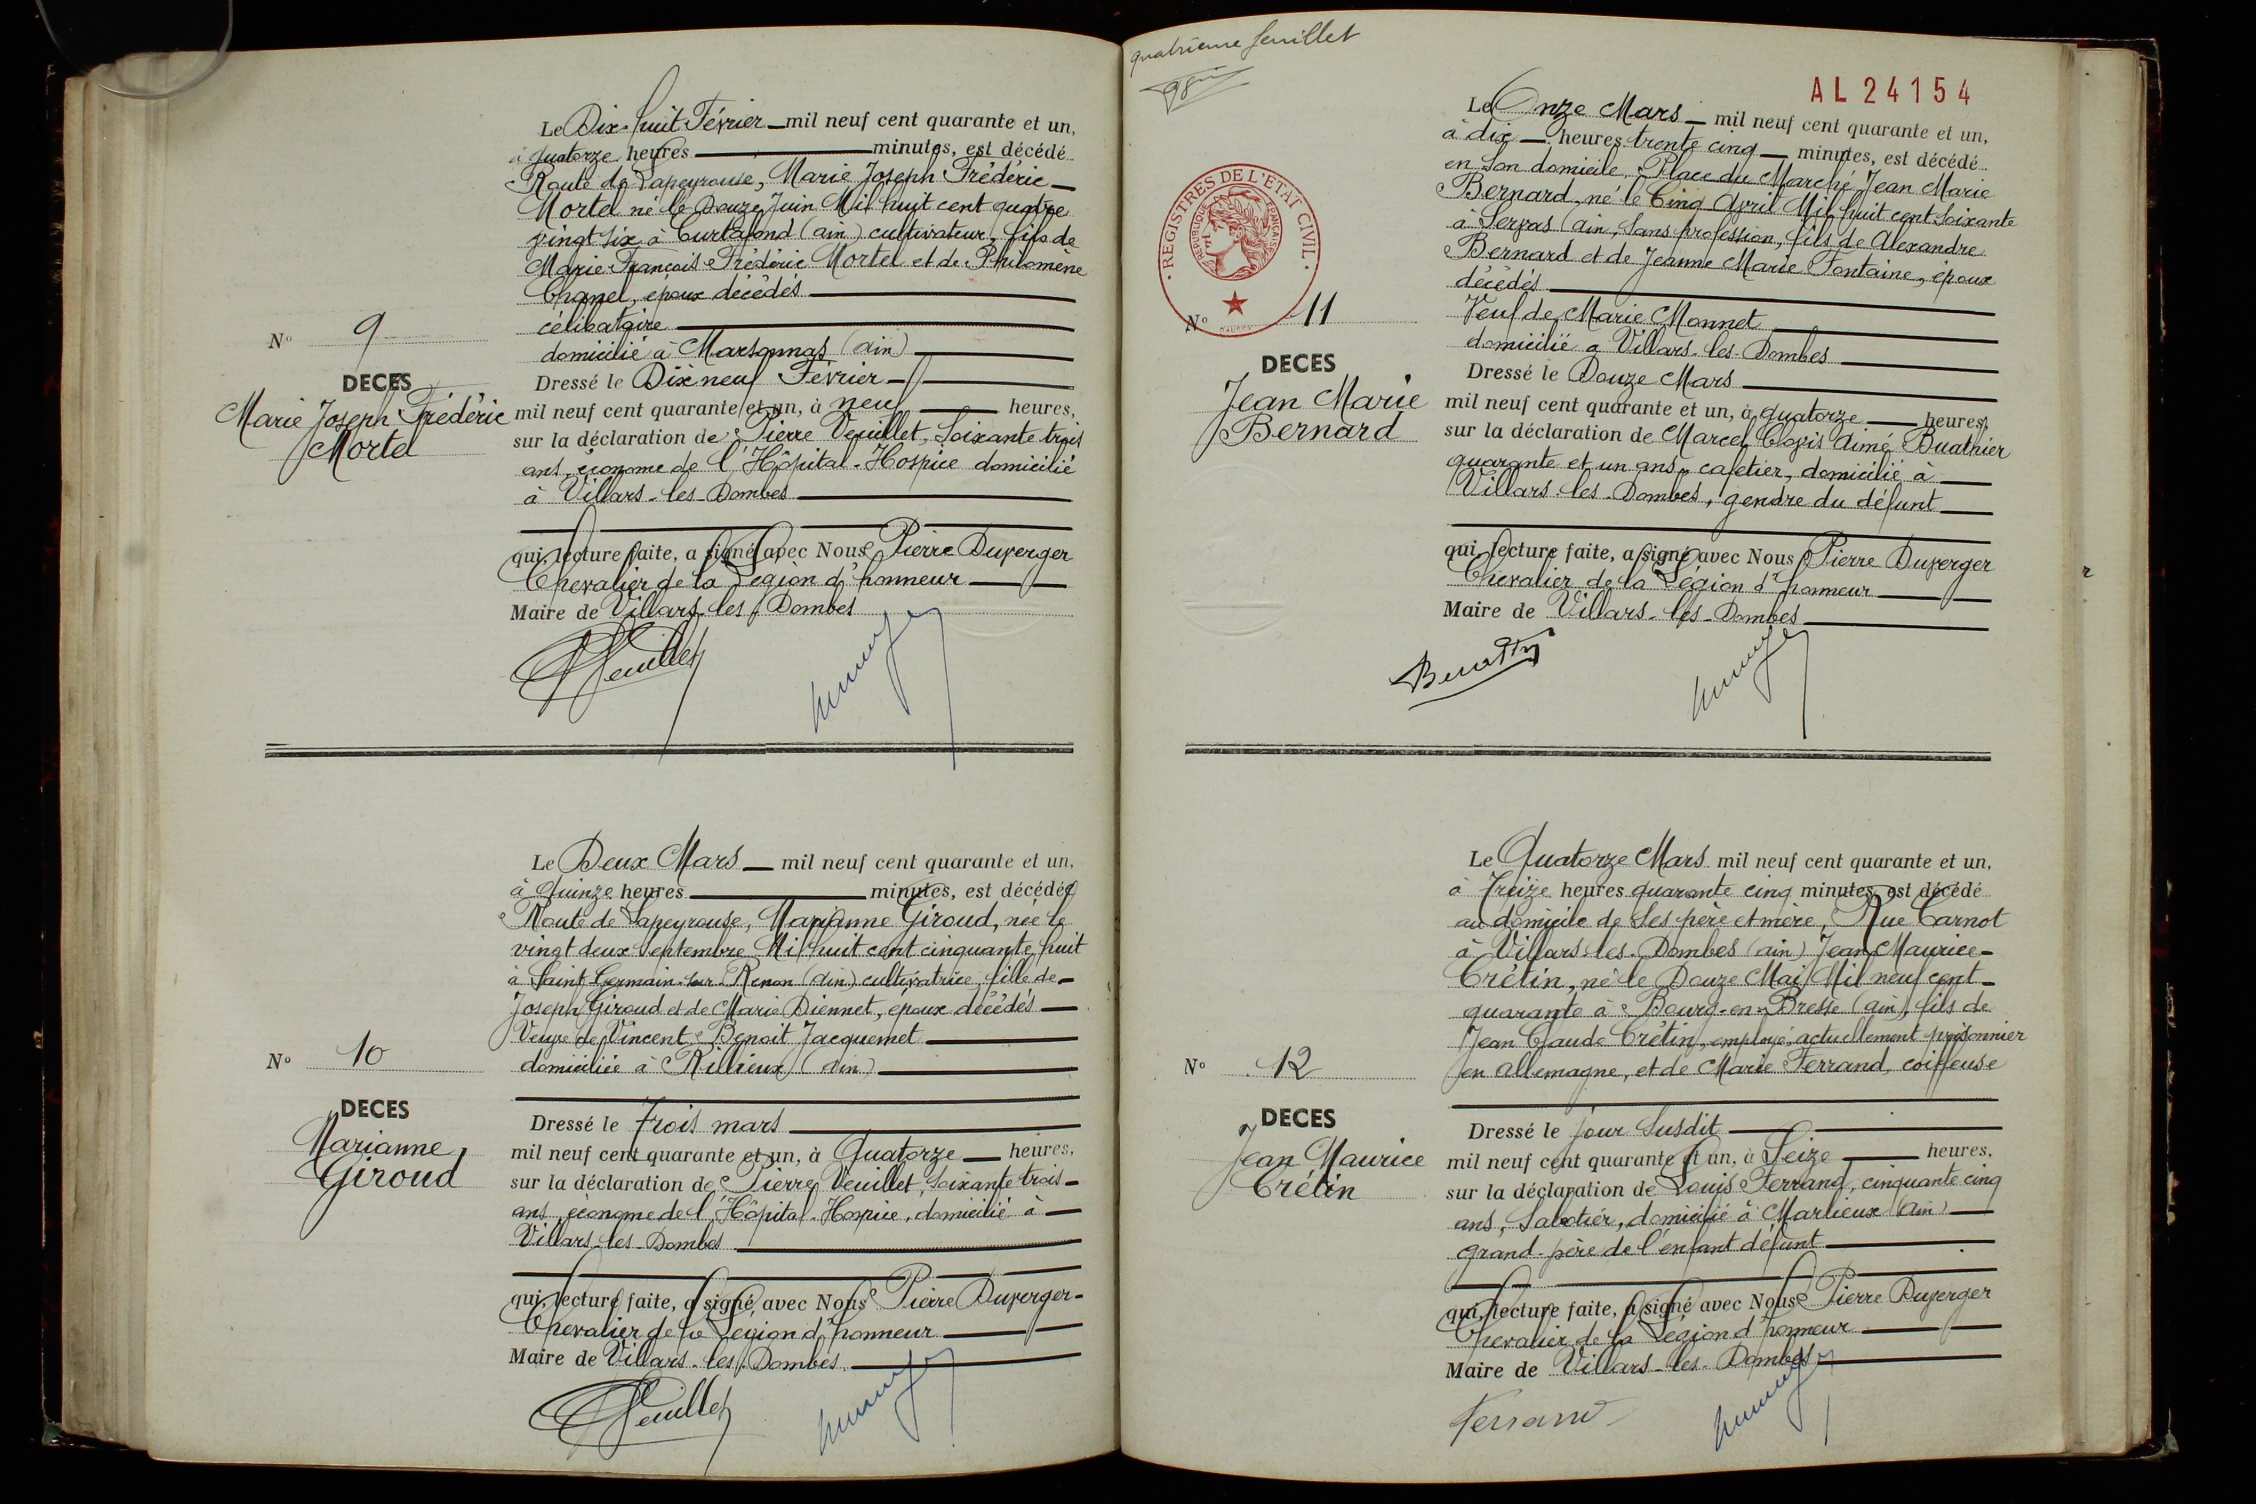 Le Dix-huit Février mil neuf cent quarante et un,
à quatorze heures minutes, est décédé
Route de Lapeyrouse, Marie Joseph Frédéric
Mortel né le Douze Juin Mil huit cent quatre
vingt six à Curtafond (ain) cultivateur, fils de
Marie François Frédéric Mortel et de Philomène
Chanel, époux décédés
célibataire
domicilié à Marsonnas (ain)
Dressé le Dix neuf Février
mil neuf cent quarante et un, à neuf heures,
sur la déclaration de Pierre Veuillet, soixante trois
ans, économe de l'Hôpital-Hospice domicilié
à Villars-les-Dombes
qui, lecture faite, a signé avec Nous Pierre Duverger
Chevalier de la Légion d'honneur
Maire de Villars-les-Dombes
Veuillet
N° 9
DECES
Marie Joseph Frédéric
Mortel
Le Deux Mars mil neuf cent quarante et un,
à quinze heures minutes, est décédée
Route de Lapeyrouse, Marianne Giroud, née le
vingt deux Septembre Mil huit cent cinquante huit
à Saint Germain-sur-Renon (ain) cultivatrice, fille de
Joseph Giroud et de Marie Diennet, époux décédés
Veuve de Vincent Benoit Jacquemet
domiciliée à Rillieux (ain)
Dressé le Trois mars
mil neuf cent quarante et un, à Quatorze heures,
sur la déclaration de Pierre Veuillet, soixante trois
ans, économe de l'Hôpital-Hospice, domicilié à
Villars-les-Dombes
qui, lecture faite, a signé avec Nous Pierre Duverger
Chevalier de la Légion d'honneur
Maire de Villars-les-Dombes
Veuillet
N° 10
DECES
Marianne
Giroud
quatrième feuillet
AL 24154
REGISTRES DE L'ETAT CIVIL
REPUBLIQUE FRANÇAISE
Le Onze Mars mil neuf cent quarante et un,
à dix heures trente cinq minutes, est décédé
en son domicile, Place du Marché Jean Marie
Bernard, né le Cinq Avril Mil huit cent soixante
à Servas (ain, sans profession, fils de Alexandre
Bernard et de Jeanne Marie Fontaine, époux
décédés
Veuf de Marie Monnet
domicilié à Villars-les-Dombes
Dressé le Douze Mars
mil neuf cent quarante et un, à quatorze heures,
sur la déclaration de Marcel Clovis Aimé Buathier
quarante et un ans, cafetier, domicilié à
Villars-les-Dombes, gendre du défunt
qui, lecture faite, a signé avec Nous Pierre Duverger
Chevalier de la Légion d'honneur
Maire de Villars-les-Dombes
N° 11
DECES
Jean Marie
Bernard
Le Quatorze Mars mil neuf cent quarante et un,
à Treize heures quarante cinq minutes, est décédé
au domicile de ses père et mère, Rue Carnot
à Villars-les-Dombes (ain) Jean Maurice
Crétin, né le Douze Mai Mil neuf cent
quarante à Bourg-en-Bresse (ain), fils de
Jean Claude Crétin, employé, actuellement prisonnier
en Allemagne, et de Marie Ferrand, coiffeuse
Dressé le jour susdit
mil neuf cent quarante et un, à Seize heures,
sur la déclaration de Louis Ferrand, cinquante cinq
ans, Sabotier, domicilié à Marlieux (ain)
grand-père de l'enfant défunt
qui, lecture faite, a signé avec Nous Pierre Duverger
Chevalier de la Légion d'honneur
Maire de Villars-les-Dombes
Ferrand
N° 12
DECES
Jean Maurice
Crétin